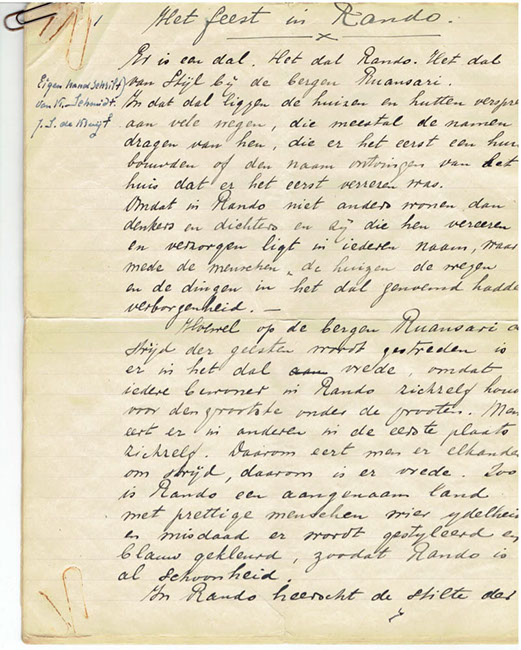 1 Het feest in Rando.
Er is een dal. Het dal Rando. Het dal
Eigen handschrift
van Stijl bij de bergen Ruansari.
In dat dal liggen de huizen en hutten verspr
aan vele wegen, die meestal de namen
dragen van hen, die er het eerst een hui
bouwden of den naam ontvingen van het
huis dat er het eerst verrezen was.
Omdat in Rando niet anders wonen dan
denkers en dichters en zij die hen vereeren
en verzorgen ligt in iederen naam, waar
mede de menschen, de huizen de wegen
en de dingen in het dal genoemd hadde
verborgenheid. —
Hoewel op de bergen Ruansari d
strijd der geesten wordt gestreden is
er in het dal vrede, omdat
iedere bewoner in Rando zichzelf houd
voor den grootste onder de grooten. Men
eert er in anderen in de eerste plaats
zichzelf. Daarom eert men er elkander
om strijd, daarom is er vrede. Zoo
is Rando een aangenaam land
met prettige menschen wier ydelheid
en misdaad er wordt gestyleerd en
blauw gekleurd, zoodat Rando is
al schoonheid
In Rando heerscht de stilte der